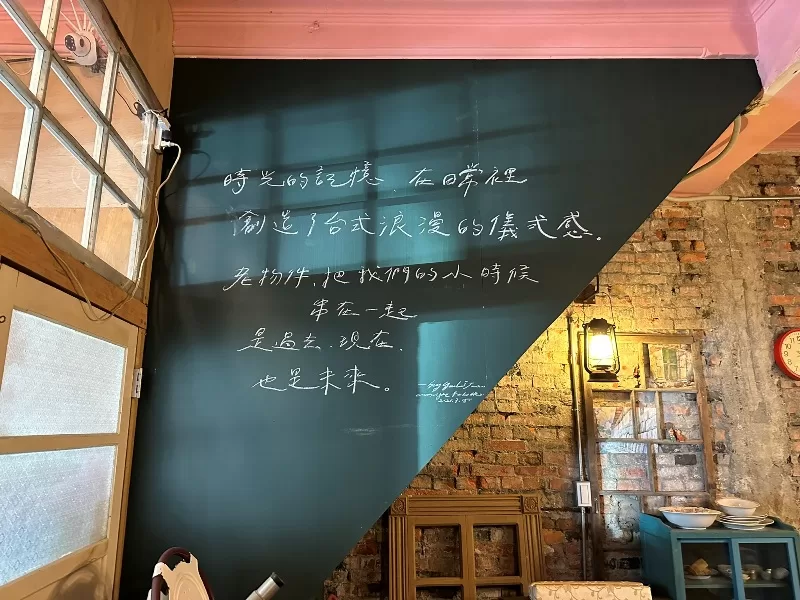 時光的記憶、在日常裡
創造了台式浪漫的儀式感。
老物件、把我們的小時候
串在一起
是過去、現在、
也是未來。